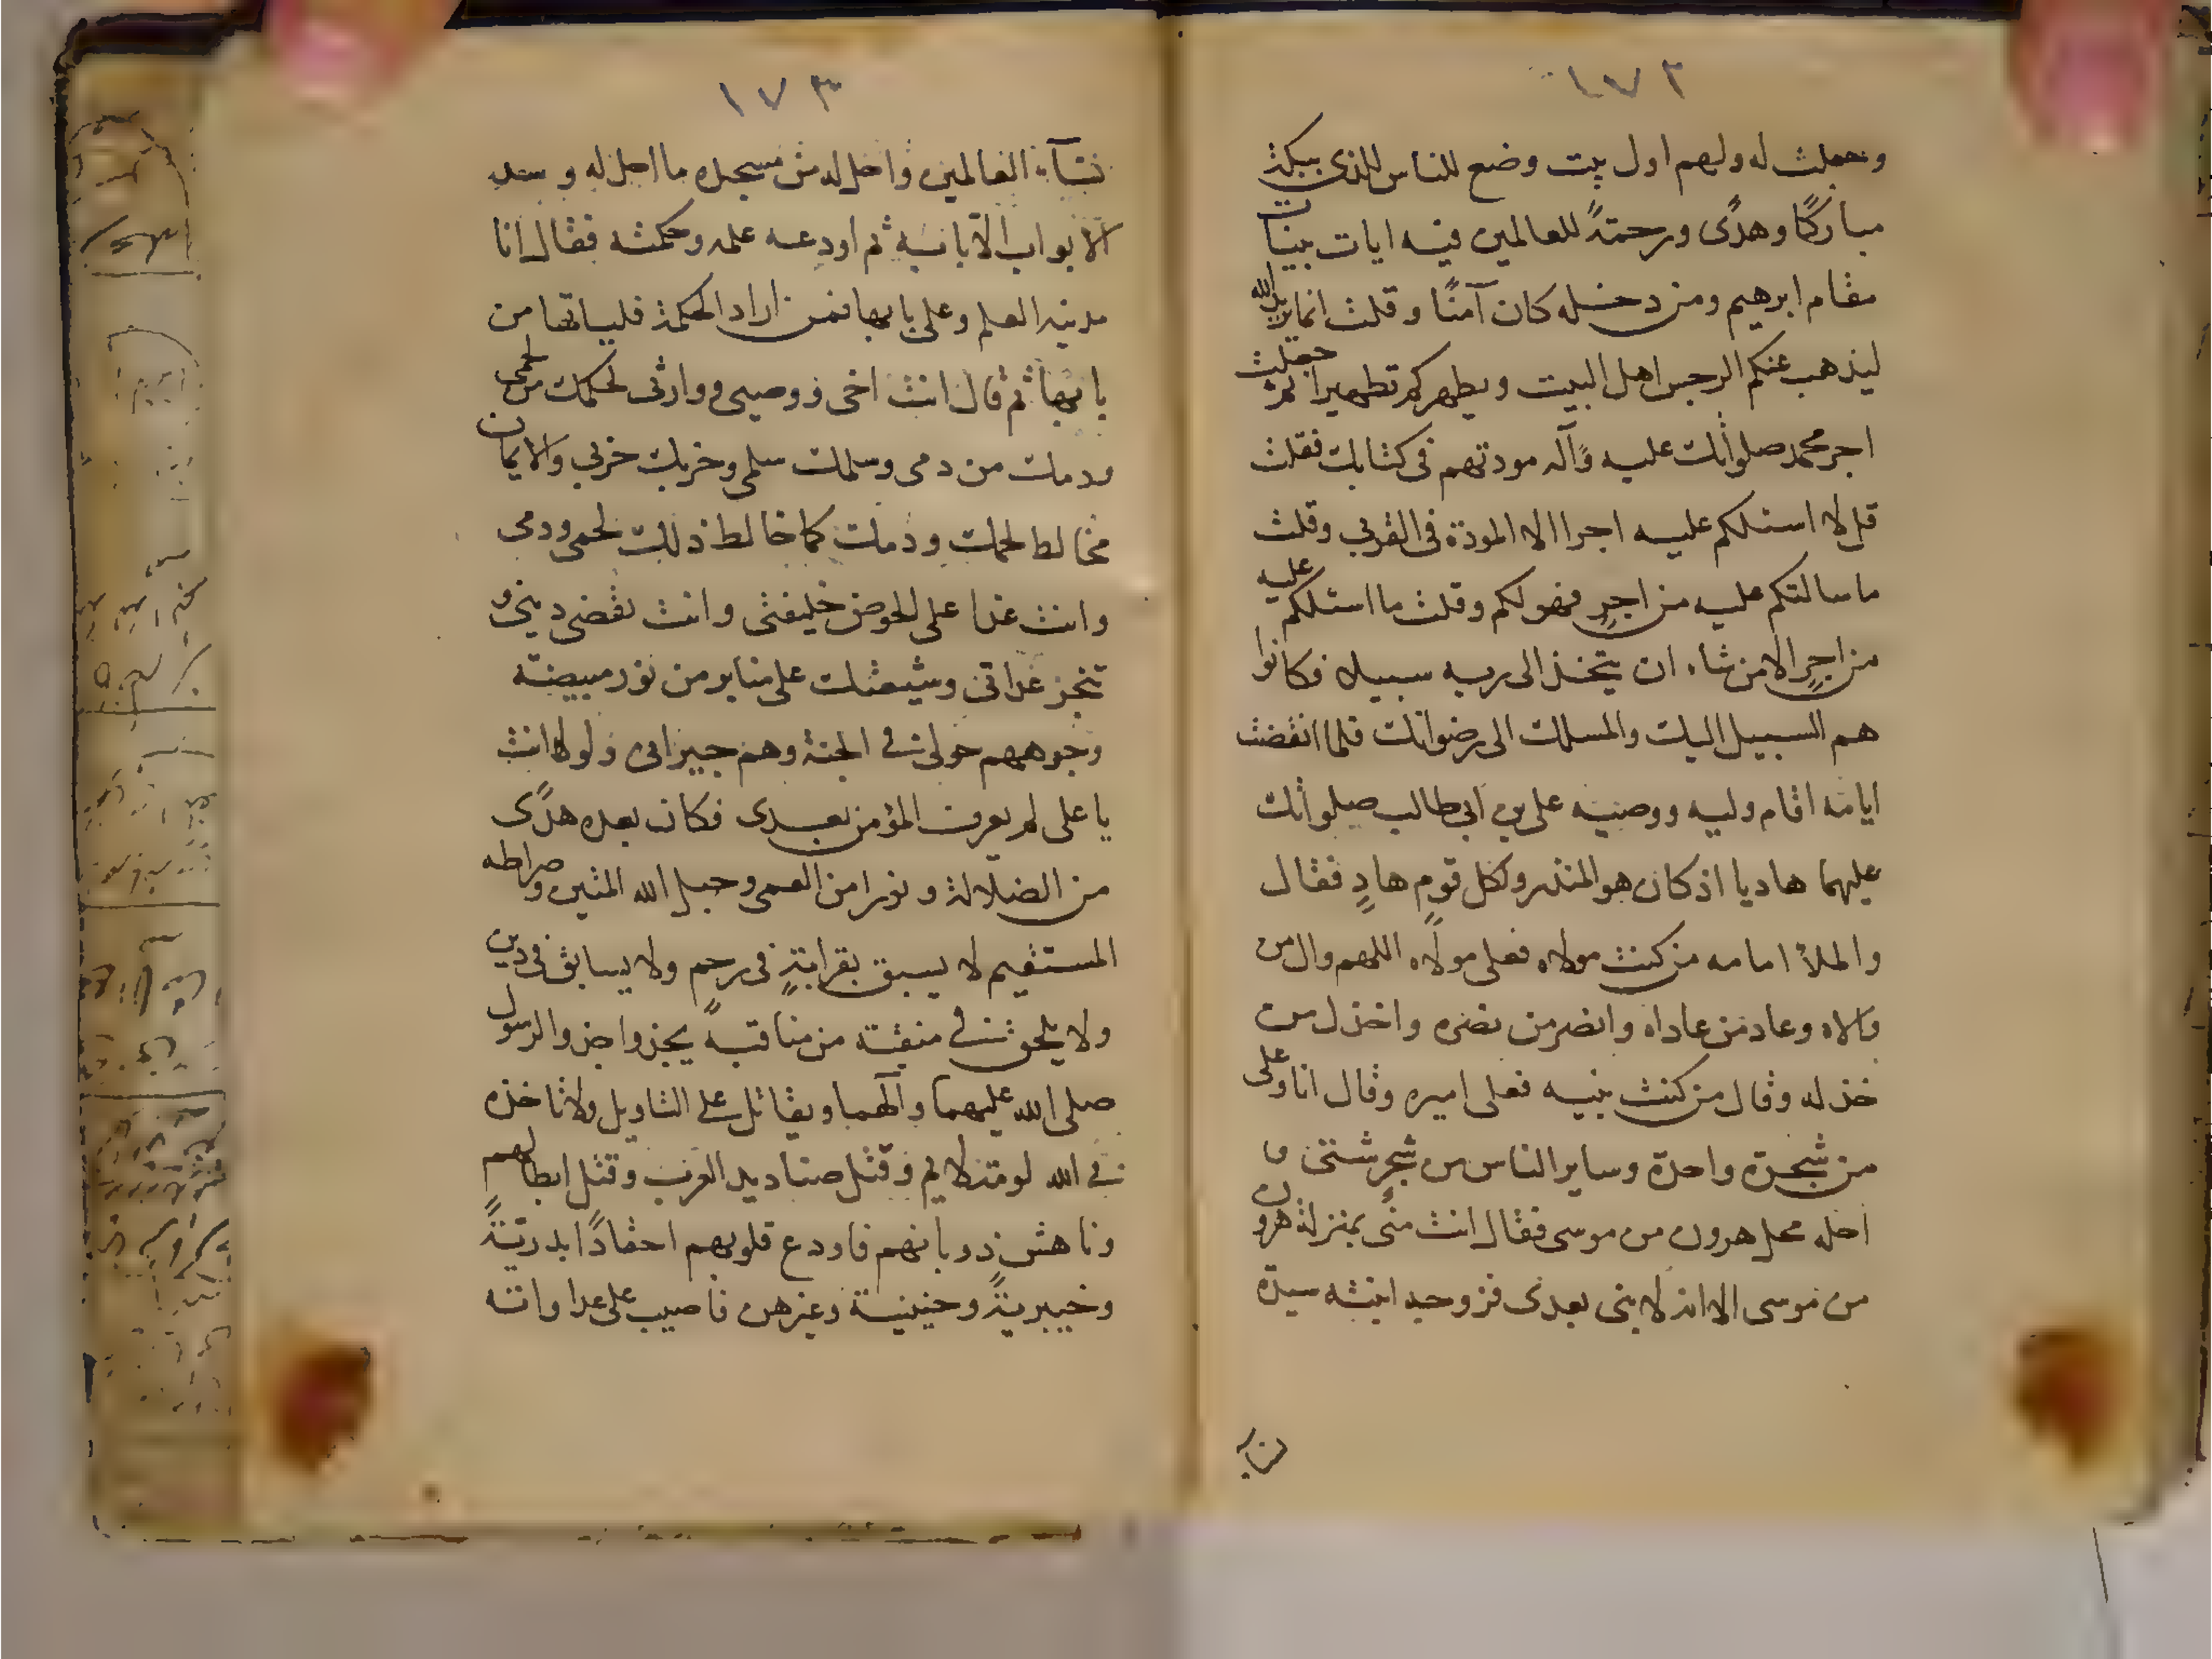 ١٧٢
وجعلت له ولهم اول بيت وضع للناس للذى ببكة
مباركًا وهدًى ورحمةً للعالمين فيه ايات بينات
مقام ابرهيم ومن دخله كان آمنًا وقلت انما يريد الله
ليذهب عنكم الرجس اهل البيت ويطهركم تطهيرا ثم جعلت
اجر محمد صلواتك عليه وآله مودتهم فى كتابك فقلت
قل لا اسئلكم عليه اجرا الا المودة فى القربى وقلت
ما سالتكم عليه من اجرٍ فهو لكم وقلت ما اسئلكم عليه
من اجرٍ الا من شاء ان يتخذ الى ربه سبيلا فكانوا
هم السبيل اليك والمسلك الى رضوانك فلما انقضت
ايامه اقام وليه ووصيه على بن ابى طالب صلواتك
عليهما هاديا اذ كان هو المنذر ولكل قومٍ هادٍ فقال
والملأ امامه من كنت مولاه فعلى مولاه اللهم وال من
والاه وعاد من عاداه وانصر من نصره واخذل من
خذله وقال من كنت نبيه فعلى اميره وقال انا وعلى
من شجرة واحدة وساير الناس من شجرٍ شتى و
احله محل هرون من موسى فقال انت منى بمنزلة هرون
من موسى الا انه لا نبى بعدى فزوجه ابنته سيدة
نساء
١٧٣
نسآء العالمين واحل له من مسجده ما احل له وسد
الابواب الا بابه ثم اودعه علمه وحكمته فقال انا
مدينة العلم وعلى بابها فمن اراد الحكمة فلياتها من
بابها ثم قال انت اخى ووصيى ووارثى لحمك من لحمى
ودمك من دمى وسلمك سلمى وحربك حربى والايمان
مخالط لحمك ودمك كما خالط ذلك لحمى ودمى
وانت غدا على الحوض خليفتى وانت تقضى دينى و
تنجز عداتى وشيعتك على منابر من نور مبيضة
وجوههم حولى فى الجنة وهم جيرانى ولولا انت
يا على لم يعرف المؤمن بعدى فكان بعده هدًى
من الضلالة ونورا من العمى وحبل الله المتين وصراطه
المستقيم لا يسبق بقرابةٍ فى رحم ولا يسابق فى دين
ولا يلحق فى منقبة من مناقبه يحذو حذو الرسول
صلى الله عليهما وآلهما ويقاتل على التاويل ولا تاخذه
فى الله لومة لايم وقتل صناديد العرب وقتل ابطالهم
وناهش ذوبانهم فاودع قلوبهم احقادًا بدريةً
وخيبريةً وحنينية وغيرهن فاصيب على عداواته